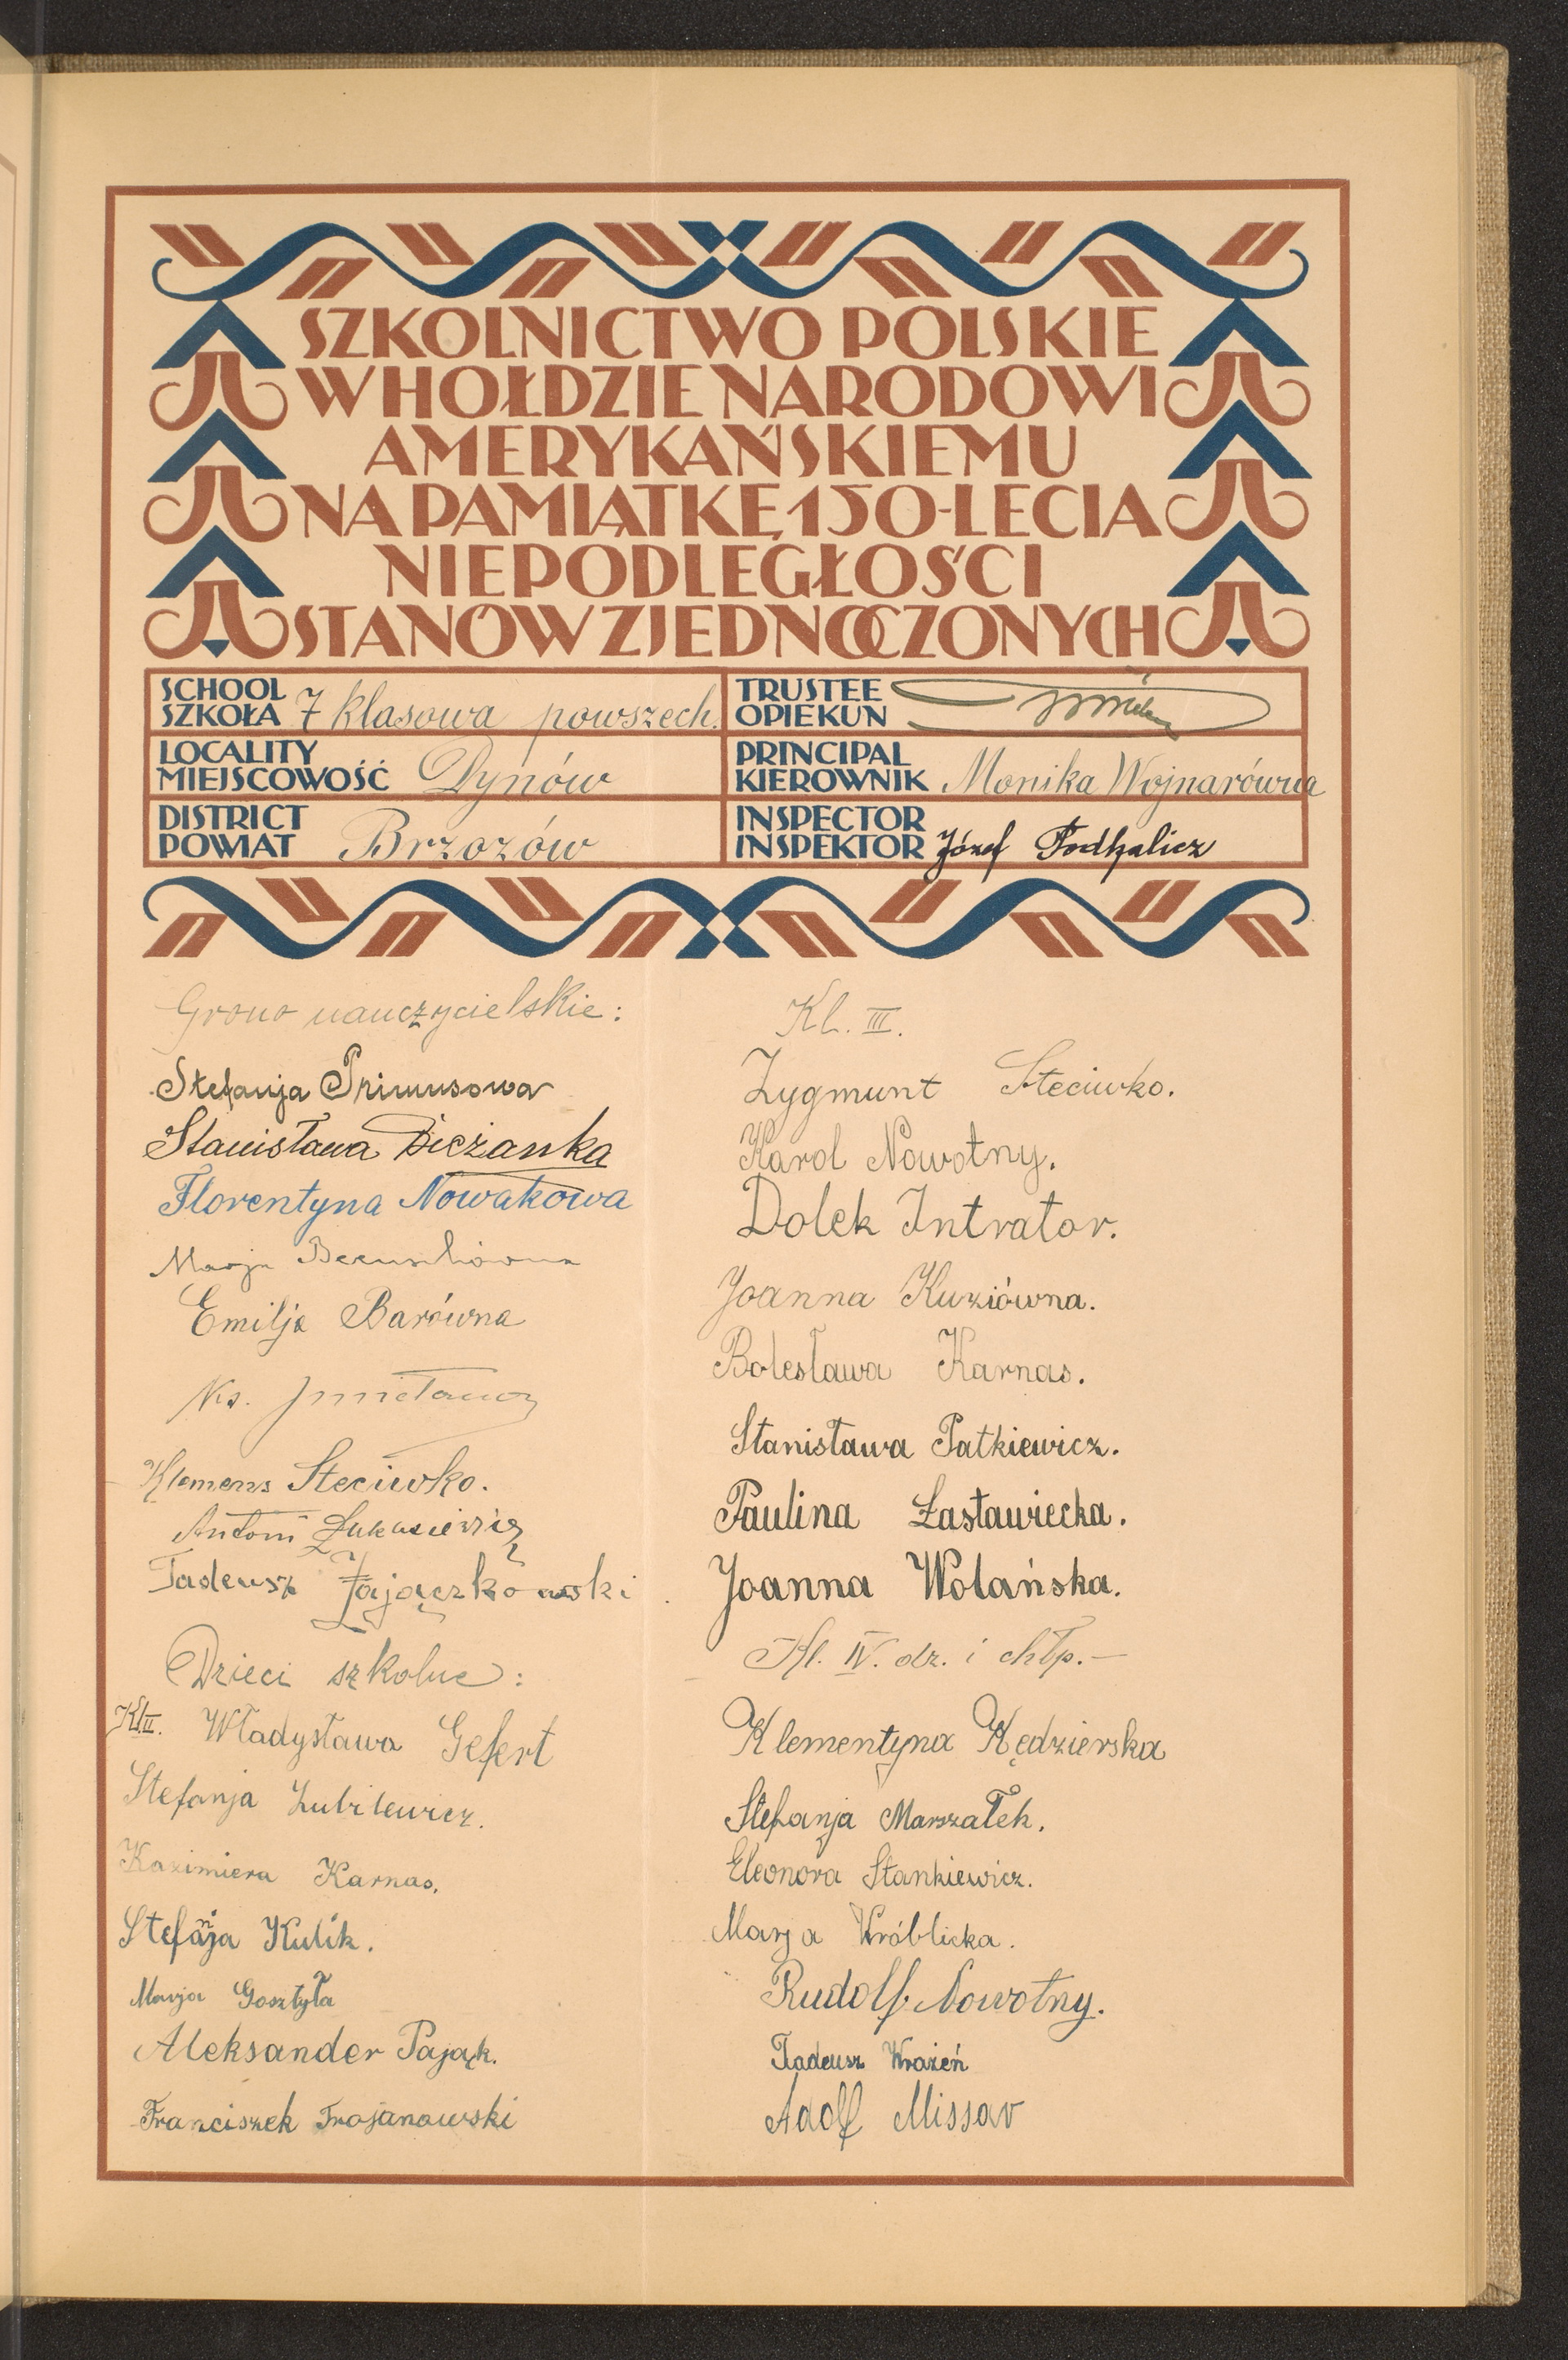 SZKOLNICTWO POLSKIE
W HOŁDZIE NARODOWI
AMERYKAŃSKIEMU
NA PAMIĄTKĘ 150-LECIA
NIEPODLEGŁOŚCI
STANÓW ZJEDNOCZONYCH
SCHOOL
SZKOŁA 7 klasowa powszech.
TRUSTEE
OPIEKUN
LOCALITY
MIEJSCOWOŚĆ Dynów
PRINCIPAL
KIEROWNIK Monika Wojnarówna
DISTRICT
POWIAT Brzozów
INSPECTOR
INSPEKTOR Józef Podhalicz
Grono nauczycielskie:
Stefanja Primusowa
Stanisława Bieżanka
Florentyna Nowakowa
Marja
Emilja Barówna
Ks.
Klemens Steciwko.
Antoni Łukasiewicz
Tadeusz Zajączkowski
Dzieci szkolne:
Kl. II. Władysława Gefert
Stefanja Zubilewicz.
Kazimiera Karnas.
Stefanja Kulik.
Marja Gosztyła
Aleksander Pająk.
Franciszek Trojanowski
Kl. III.
Zygmunt Steciwko.
Karol Nowotny.
Dolek Intrator.
Joanna Kuziówna.
Bolesława Karnas.
Stanisława Patkiewicz.
Paulina Zastawiecka.
Joanna Wolańska.
Kl. IV. dz. i chłp.-
Klementyna Kędzierska
Stefanja Marszałek.
Eleonora Stankiewicz.
Marja Wróblicka.
Rudolf Nowotny.
Tadeusz Wrażeń
Adolf Missar